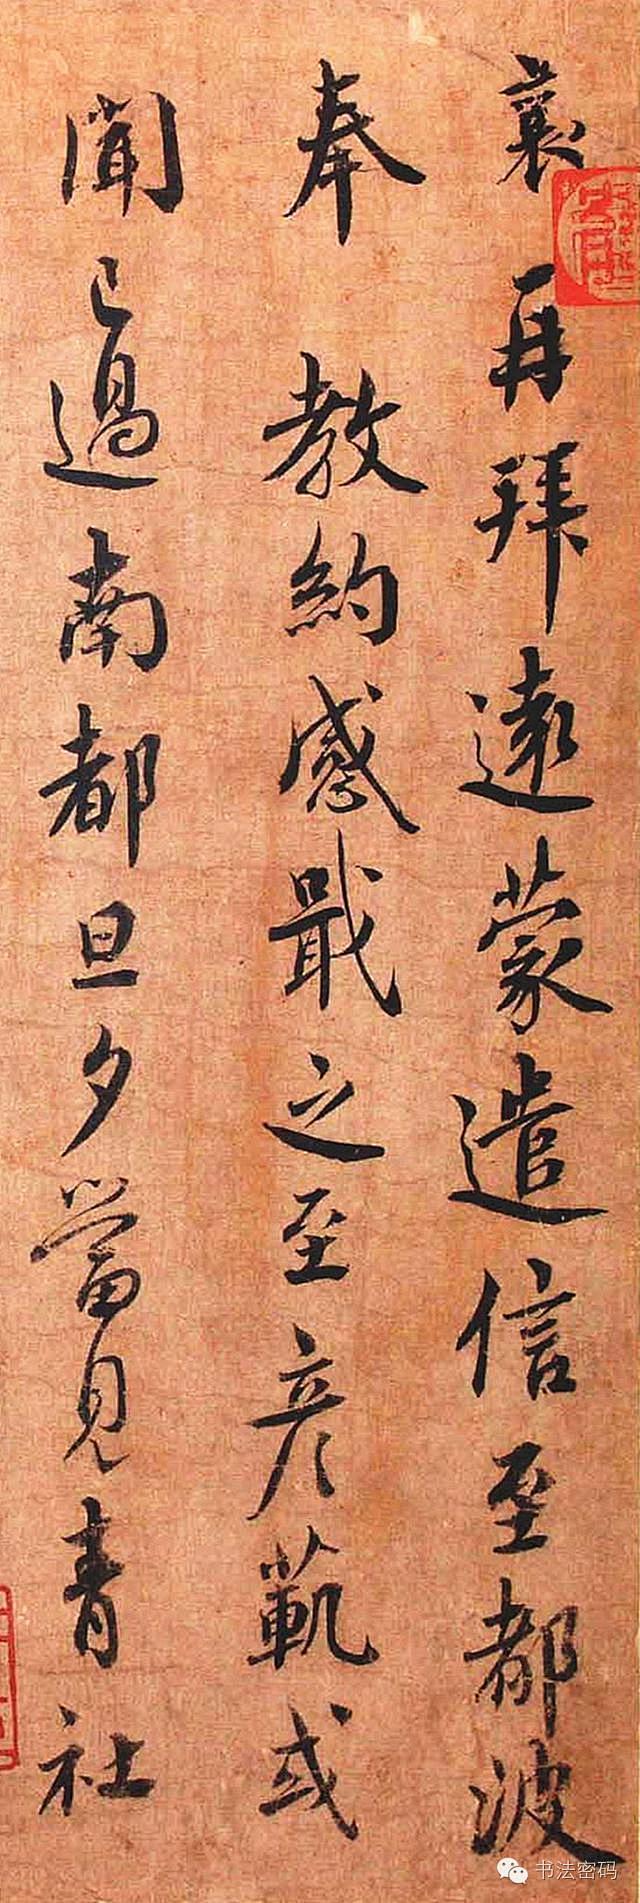 襄再拜遠蒙遣信至都波
奉教約感戢之至彦範或
聞已過南都旦夕當見青社
书法密码